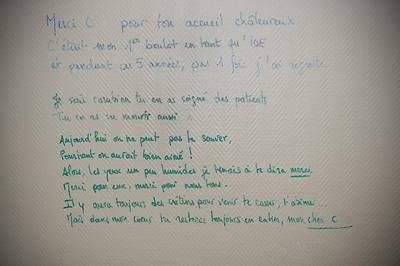 Merci C pour ton accueil chaleureux
C'était mon 1er boulot en tant qu'IDE
et pendant ces 5 années, pas 1 fois j'ai regretté
Je sais combien tu en as soigné des patients
Tu en as vu mourir aussi
Aujourd'hui on ne peut pas te sauver,
Pourtant on aurait bien aimé !
Alors, les yeux un peu humides je tenais à te dire merci
Merci pour eux, merci pour nous tous.
Il y aura toujours des crétins pour venir te casser, t'abîmer
Mais dans mon cœur tu resteras toujours en entier, mon cher C.